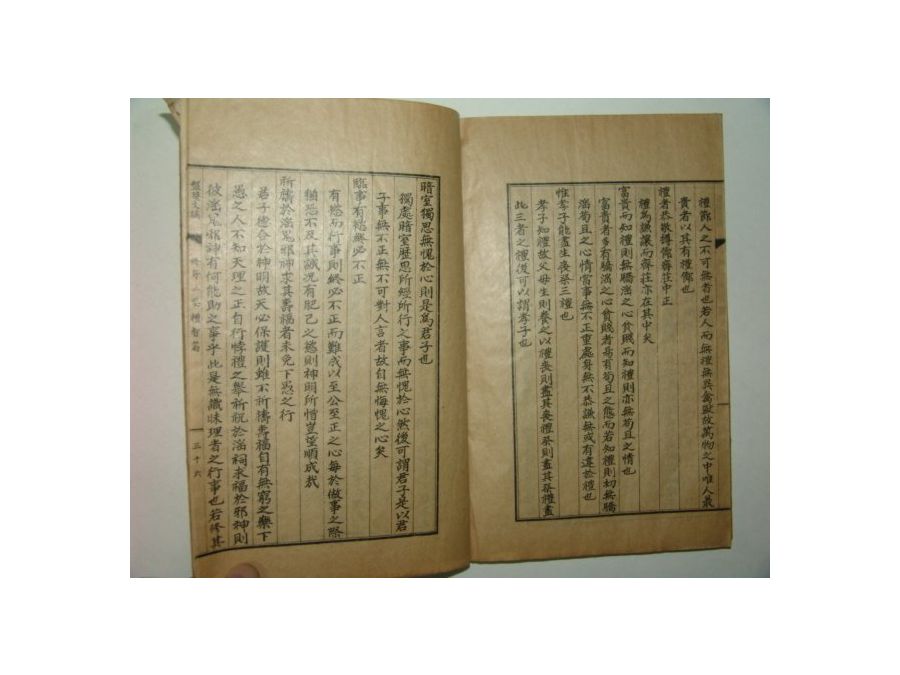 禮節人之不可無者也若人而無禮無異禽獸故萬物之中唯人最
貴者以其有禮節也
禮者恭敬撙節齊莊中正
禮爲謙讓而齊莊亦在其中矣
富貴而知禮則無驕滛之心貧賤而知禮則亦無苟且之情也
富貴者多有驕滛之心貧賤者易有苟且之態而若知禮則切無驕
滛苟且之心情當事無不正重處身無不恭謙無或有違於禮也
惟孝子能盡生喪祭三禮也
孝子知禮故父母生則養之以禮喪則盡其喪禮祭則盡其祭禮盡
此三者之禮後可以謂孝子也
暗室獨思無愧於心則是爲君子也
獨處暗室歷思所經所行之事而無愧於心然後可謂君子是以君
子事無不正無不可對人言者故自無悔愧之心矣
臨事有慾終必不正
有慾而行事則終必不正而難成以至公至正之心每於做事之際
猶恐不及其誠況有肥己之慾則神明所憎豈望順成哉
所禱於滛鬼邪神求其壽福者未免下愚之行
君子德合於神明故天必保護則雖不祈禱壽福自有無窮之樂下
愚之人不知天理之正自行悖禮之擧祈祝於滛祠求福於邪神則
彼滛鬼邪神有何能助之事乎此是無識昧理者之行事也若修其
禮智篇
三十六